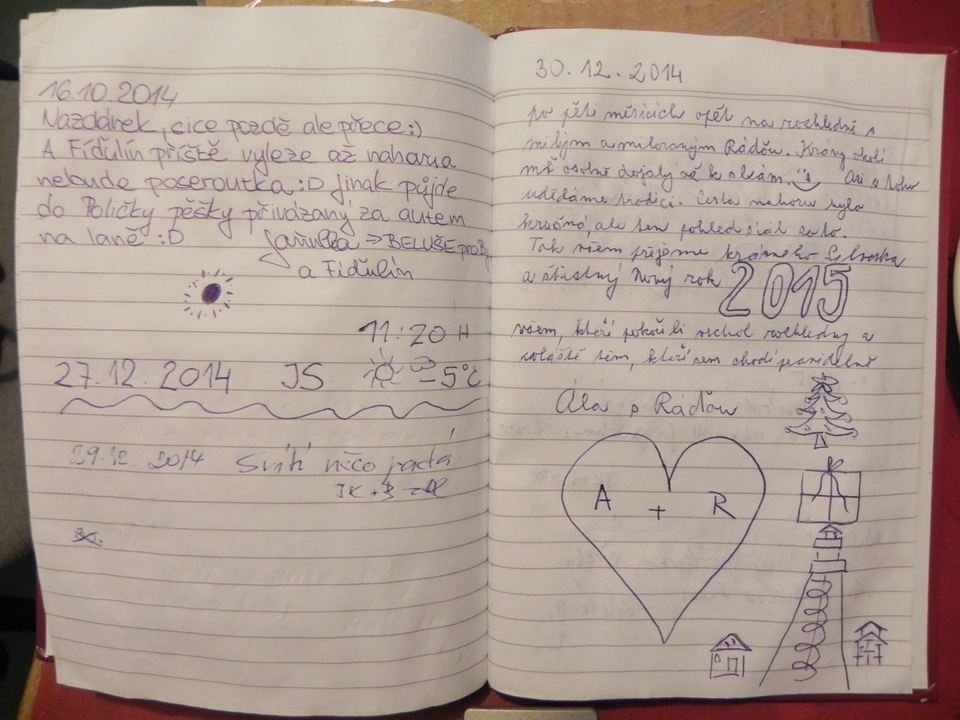 16.10.2014
Nazdárek, sice pozdě ale přece :)
A Fíďulín příště vyleze až nahoru a
nebude poseroutka :D jinak půjde
do Poličky pěšky přivázaný za autem
na laně :D
a Fíďulín
11:20 H
27.12.2014 JS -5°C
29.12. 2014 Svítí něco padá.
30.12.2014
po pěti měsících opět na rozhledně s
milým a milovaným Ráďou. Krásy okolí
mě osobně dojaly až k slzám.
uděláme tradici. Cesta nahoru byla
ale ten pohled stál za to.
Tak všem přejeme krásného Silvestra
a šťastný Nový rok 2015
všem, kteří pokořili vrchol rozhledny a
zvláště těm, kteří sem chodí pravidelně
Ála s Ráďou
A + R